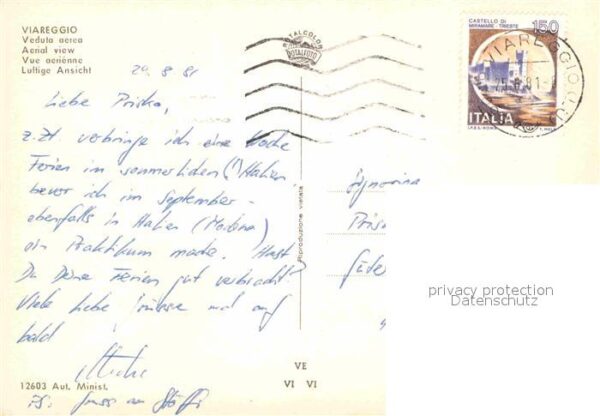 VIAREGGIO
Veduta aerea
Aerial view
Vue aérienne
Luftige Ansicht
20.8.81
Liebe Priska,
z.Zt. verbringe ich eine Woche
Ferien im sommerlichen (!) Italien
bevor ich im September
ebenfalls in Italien (Modena)
ein Praktikum mache. Hast
Du Deine Ferien gut verbracht?
Viele liebe Grüsse und auf
bald
PS. Gruss an
12603 Aut. Minist.
VE
VI VI
Riproduzione vietata
TOTALCOLOR
ROTALFOTO
CASTELLO DI
MIRAMARE - TRIESTE
150
ITALIA
I.P.Z.S. - ROMA
VIAREGGIO
25.8.81
Signorina
Pris
privacy protection
Datenschutz